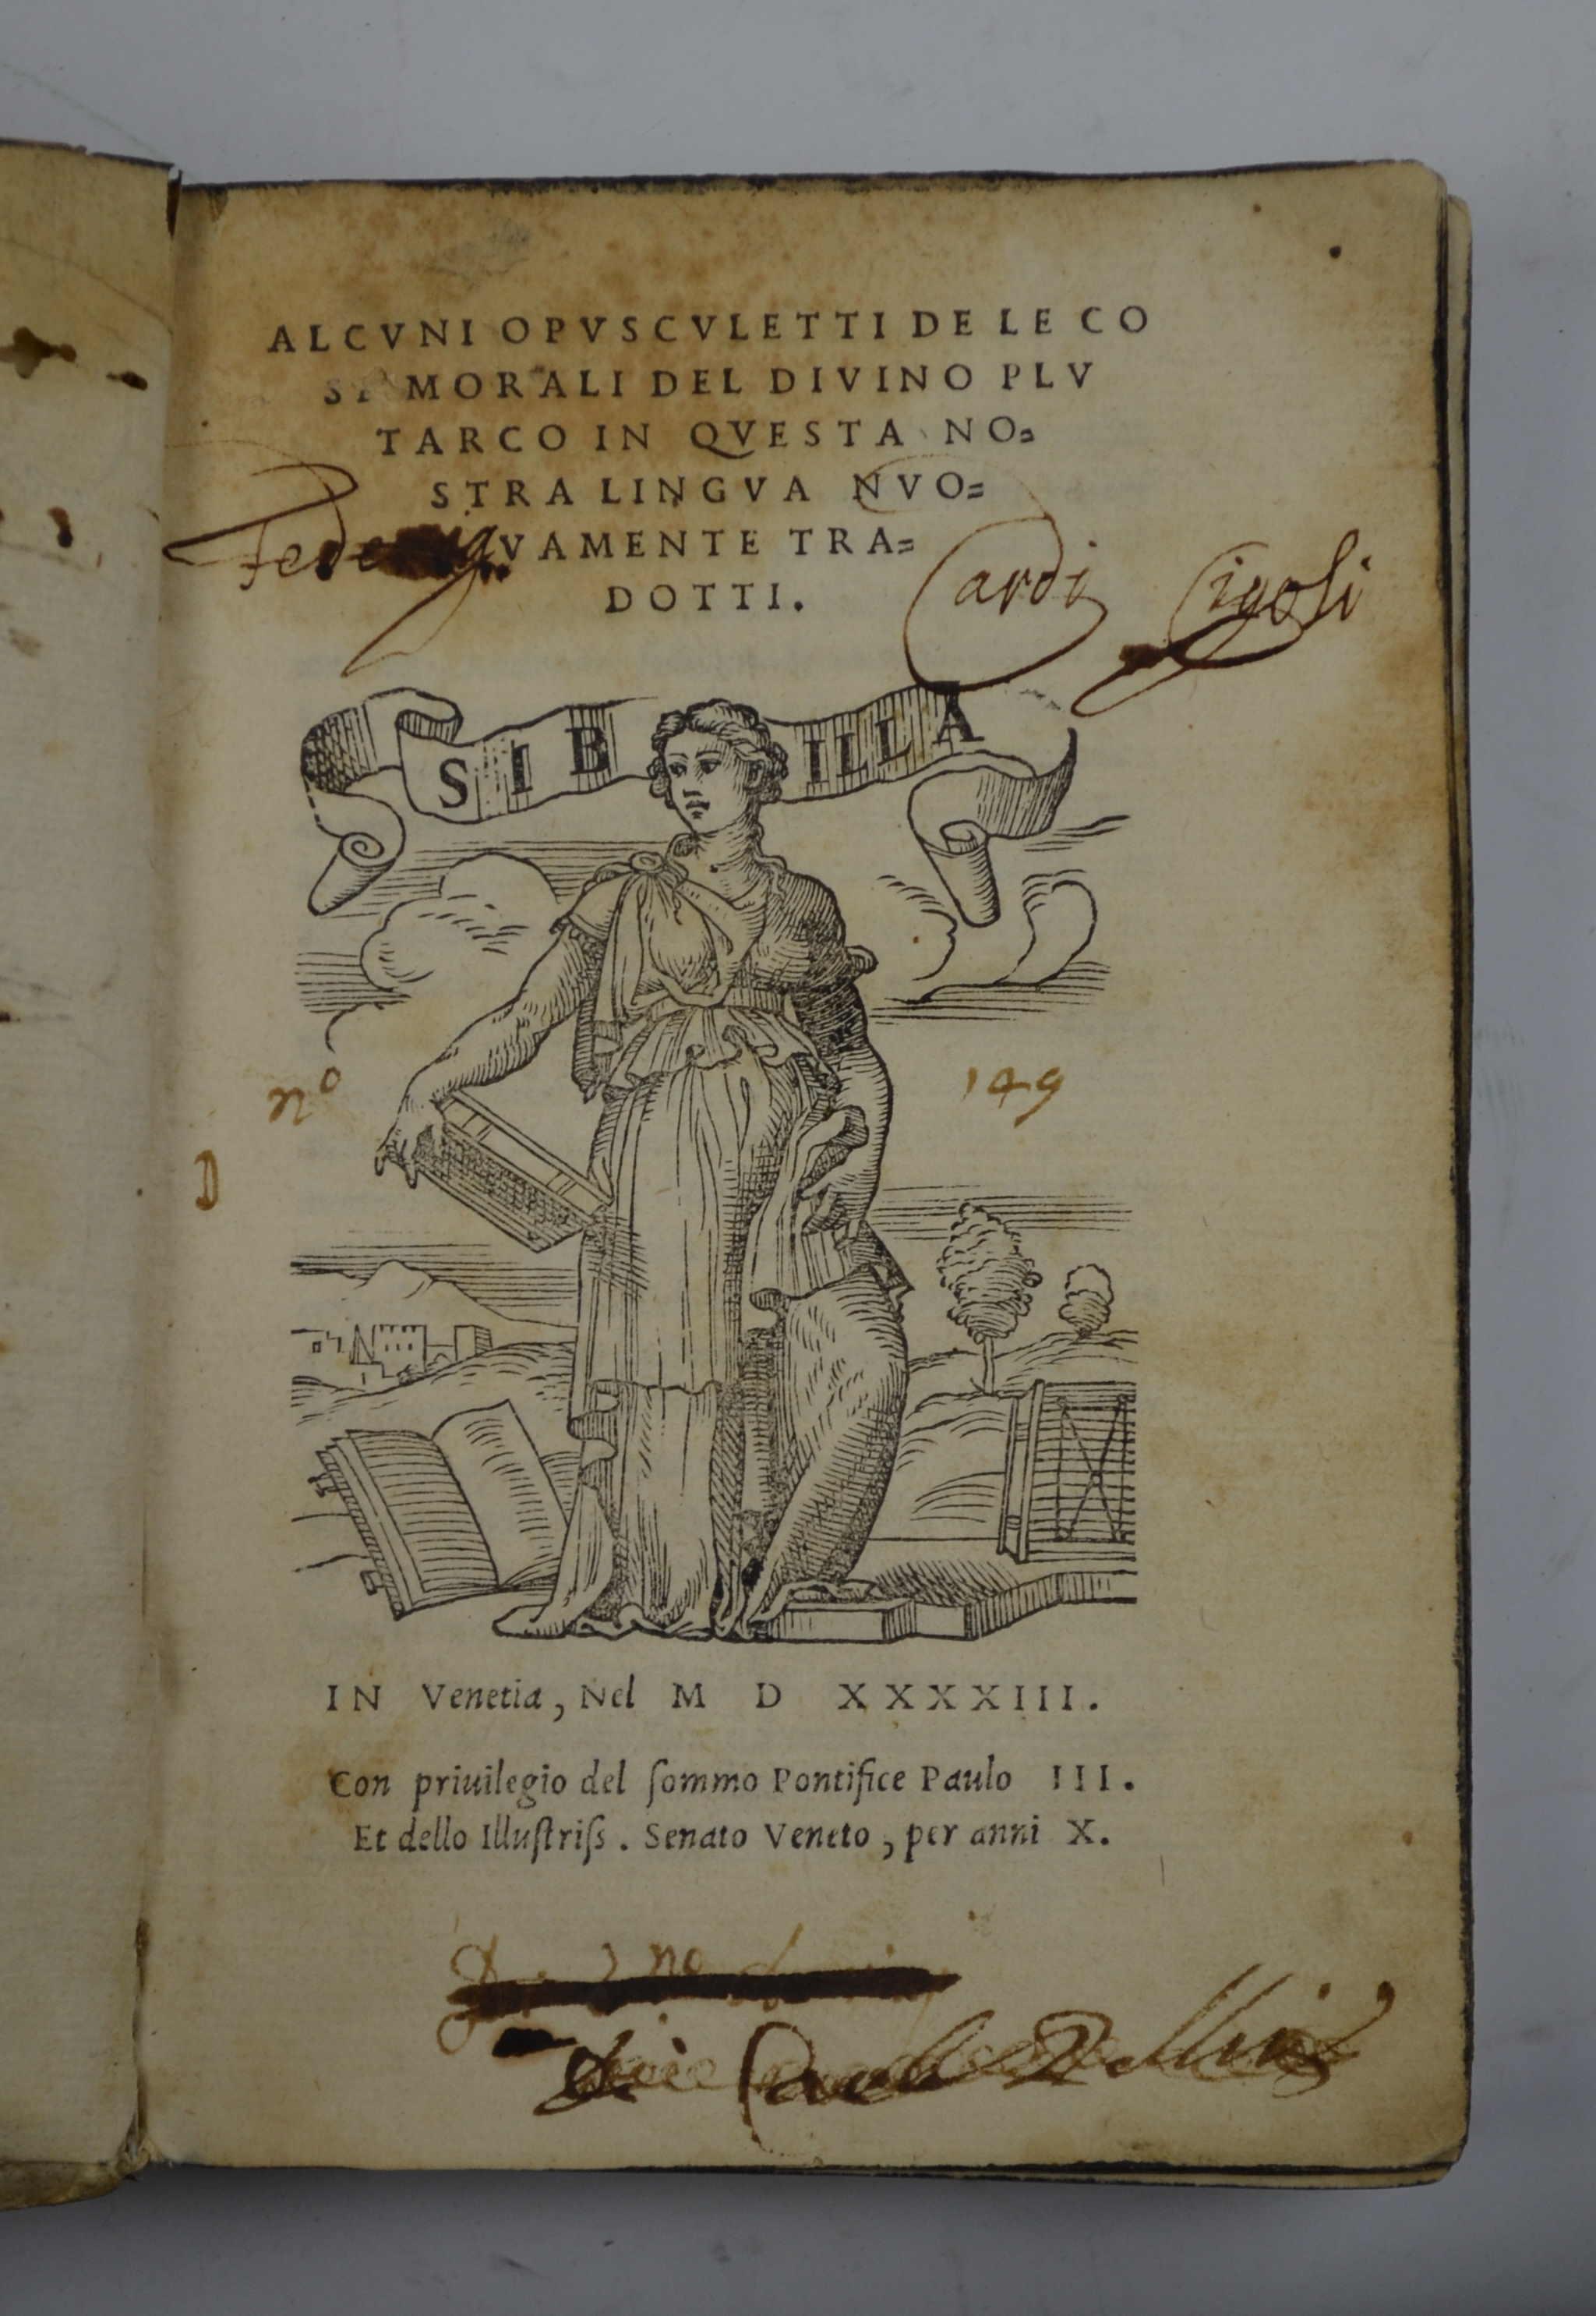 ALCVNI OPVSCVLETTI DE LE CO
SE MORALI DEL DIVINO PLV
TARCO IN QVESTA NO=
STRA LINGVA NVO=
VAMENTE TRA=
DOTTI.
Cardi Cigoli
SIBILLA
nº 149
D
IN Venetia, Nel M D XXXXIII.
Con priuilegio del ſommo Pontifice Paulo III.
Et dello Illuſtriſs. Senato Veneto, per anni X.